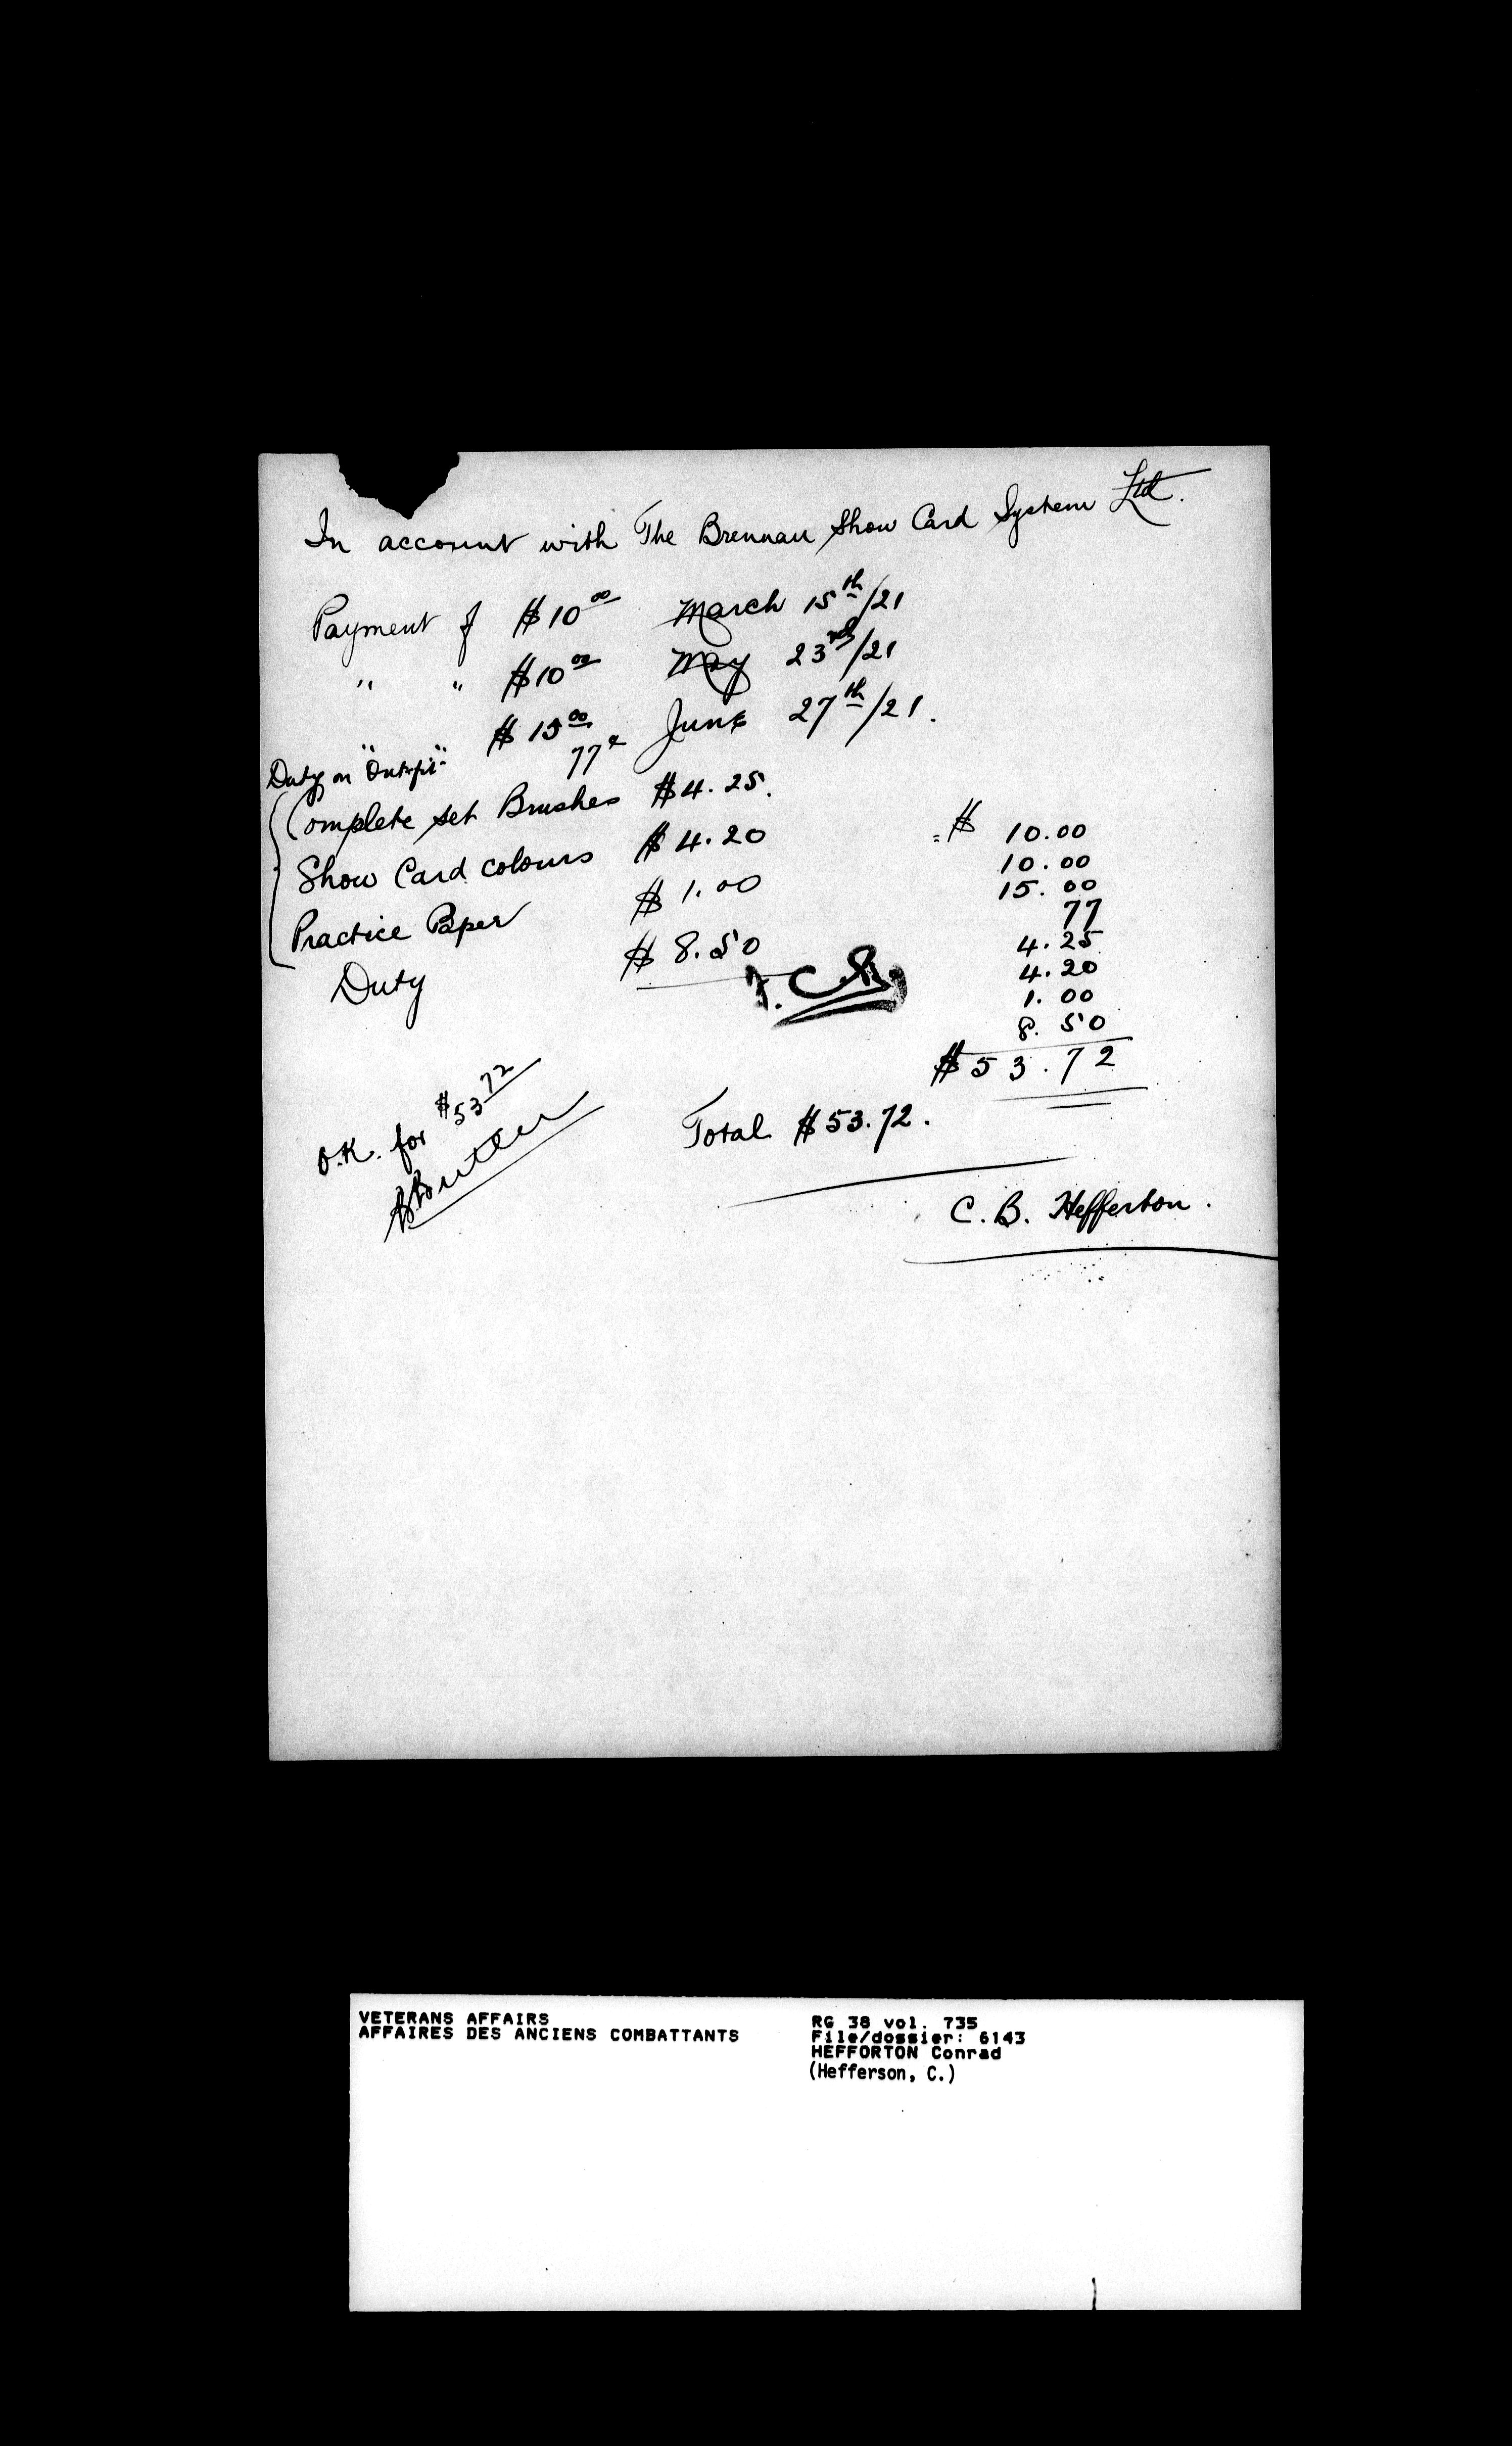 In account with The Brennan Show Card System Ltd.
Payment of $10 00 March 15th/21
" " $10 00 May 23rd/21
$15 00 June 27th/21.
Duty on "Outfit" 77c
Complete set Brushes $4.25.
Show Card colours $4.20
Practice Paper $1.00
Duty $8.50
= $ 10.00
10.00
15.00
77
4.25
4.20
1.00
8.50
$53.72
O.K. for $53 72
Butler
Total $53.72.
C. B. Hefferton.
VETERANS AFFAIRS
AFFAIRES DES ANCIENS COMBATTANTS
RG 38 vol. 735
File/dossier: 6143
HEFFORTON Conrad
(Hefferson, C.)